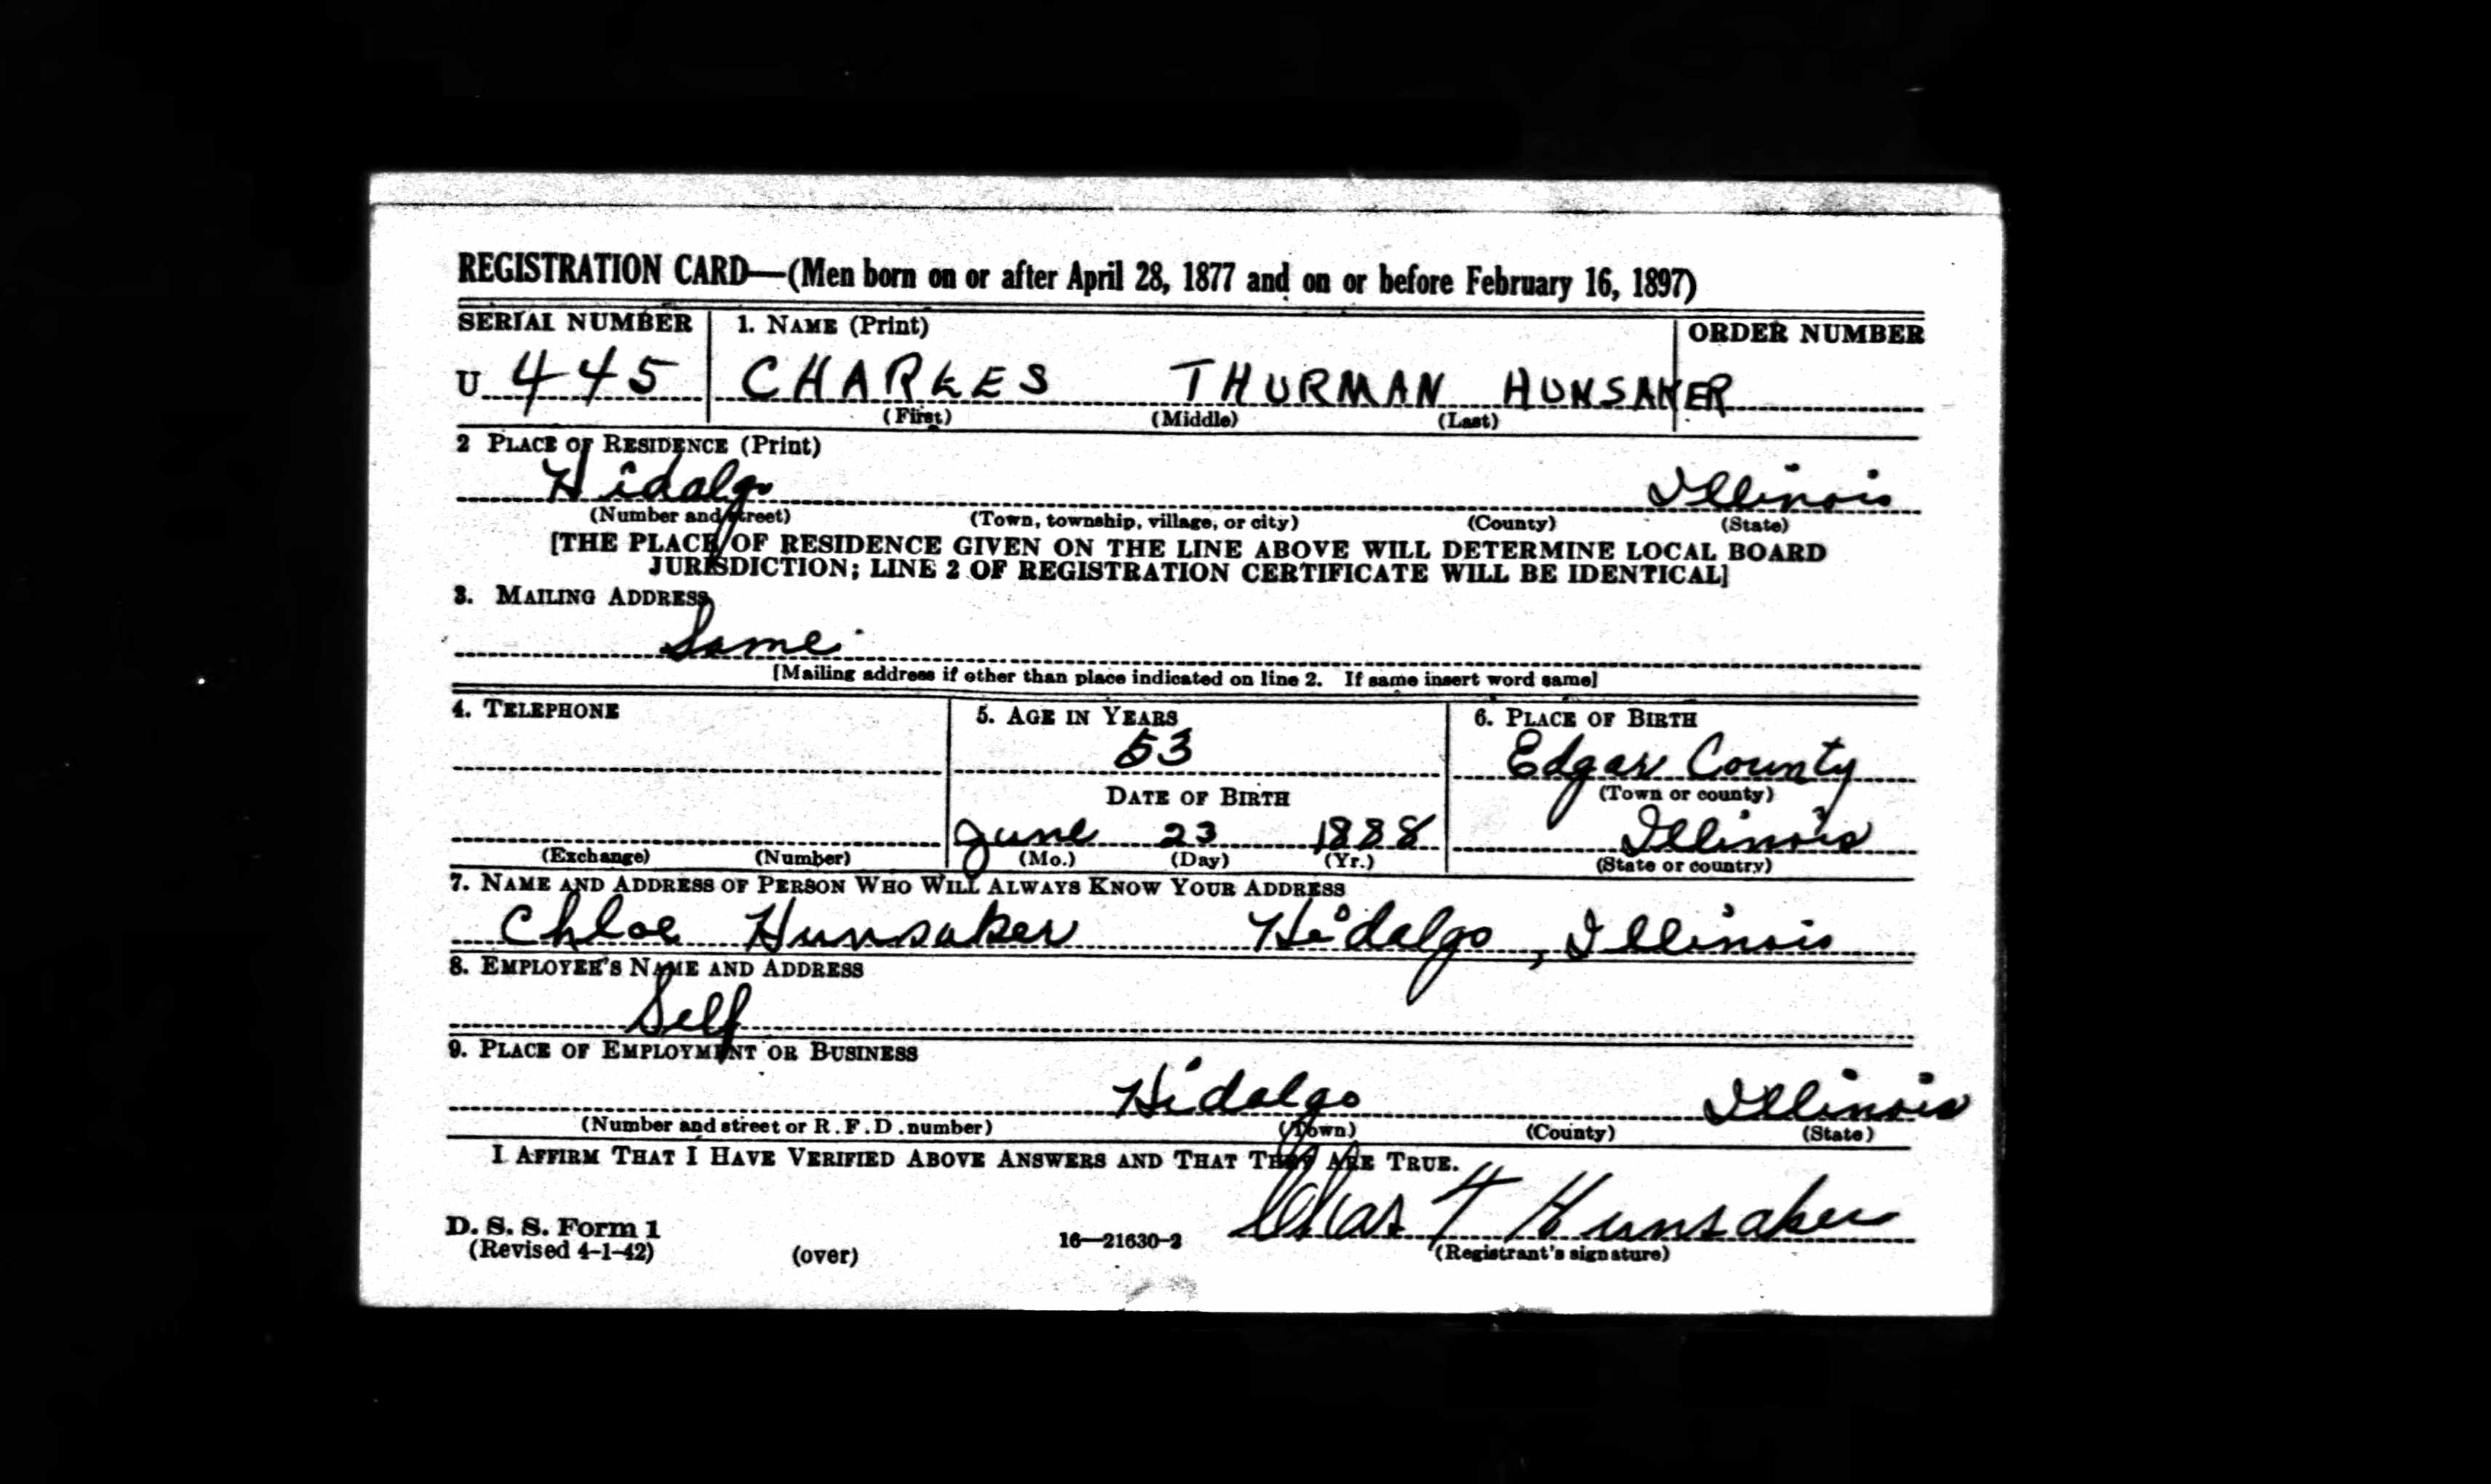 REGISTRATION CARD—(Men born on or after April 28, 1877 and on or before February 16, 1897)
SERIAL NUMBER 1. NAME (Print) ORDER NUMBER
U 445 CHARLES THURMAN HUNSAKER
(First) (Middle) (Last)
2 PLACE OF RESIDENCE (Print)
Hidalgo Illinois
(Number and street) (Town, township, village, or city) (County) (State)
[THE PLACE OF RESIDENCE GIVEN ON THE LINE ABOVE WILL DETERMINE LOCAL BOARD
JURISDICTION; LINE 2 OF REGISTRATION CERTIFICATE WILL BE IDENTICAL]
3. MAILING ADDRESS
Same
[Mailing address if other than place indicated on line 2. If same insert word same]
4. TELEPHONE 5. AGE IN YEARS 6. PLACE OF BIRTH
53 Edgar County
DATE OF BIRTH (Town or county)
June 23 1888 Illinois
(Exchange) (Number) (Mo.) (Day) (Yr.) (State or country)
7. NAME AND ADDRESS OF PERSON WHO WILL ALWAYS KNOW YOUR ADDRESS
Chloe Hunsaker Hidalgo, Illinois
8. EMPLOYER'S NAME AND ADDRESS
Self
9. PLACE OF EMPLOYMENT OR BUSINESS
Hidalgo Illinois
(Number and street or R.F.D. number) (Town) (County) (State)
I AFFIRM THAT I HAVE VERIFIED ABOVE ANSWERS AND THAT THEY ARE TRUE.
Chas T Hunsaker
D. S. S. Form 1
(Revised 4-1-42) (over) 16—21630-2 (Registrant's signature)